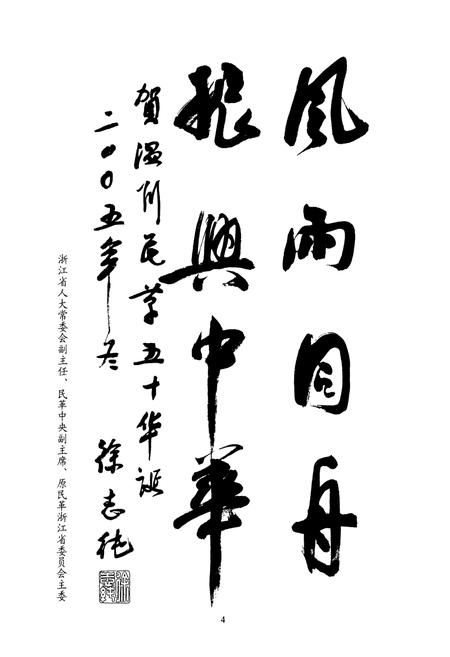 风雨同舟
振興中華
賀温州民革五十华诞
二〇〇五年冬 徐志纯
浙江省人大常委会副主任、民革中央副主席、原民革浙江省委员会主委
4